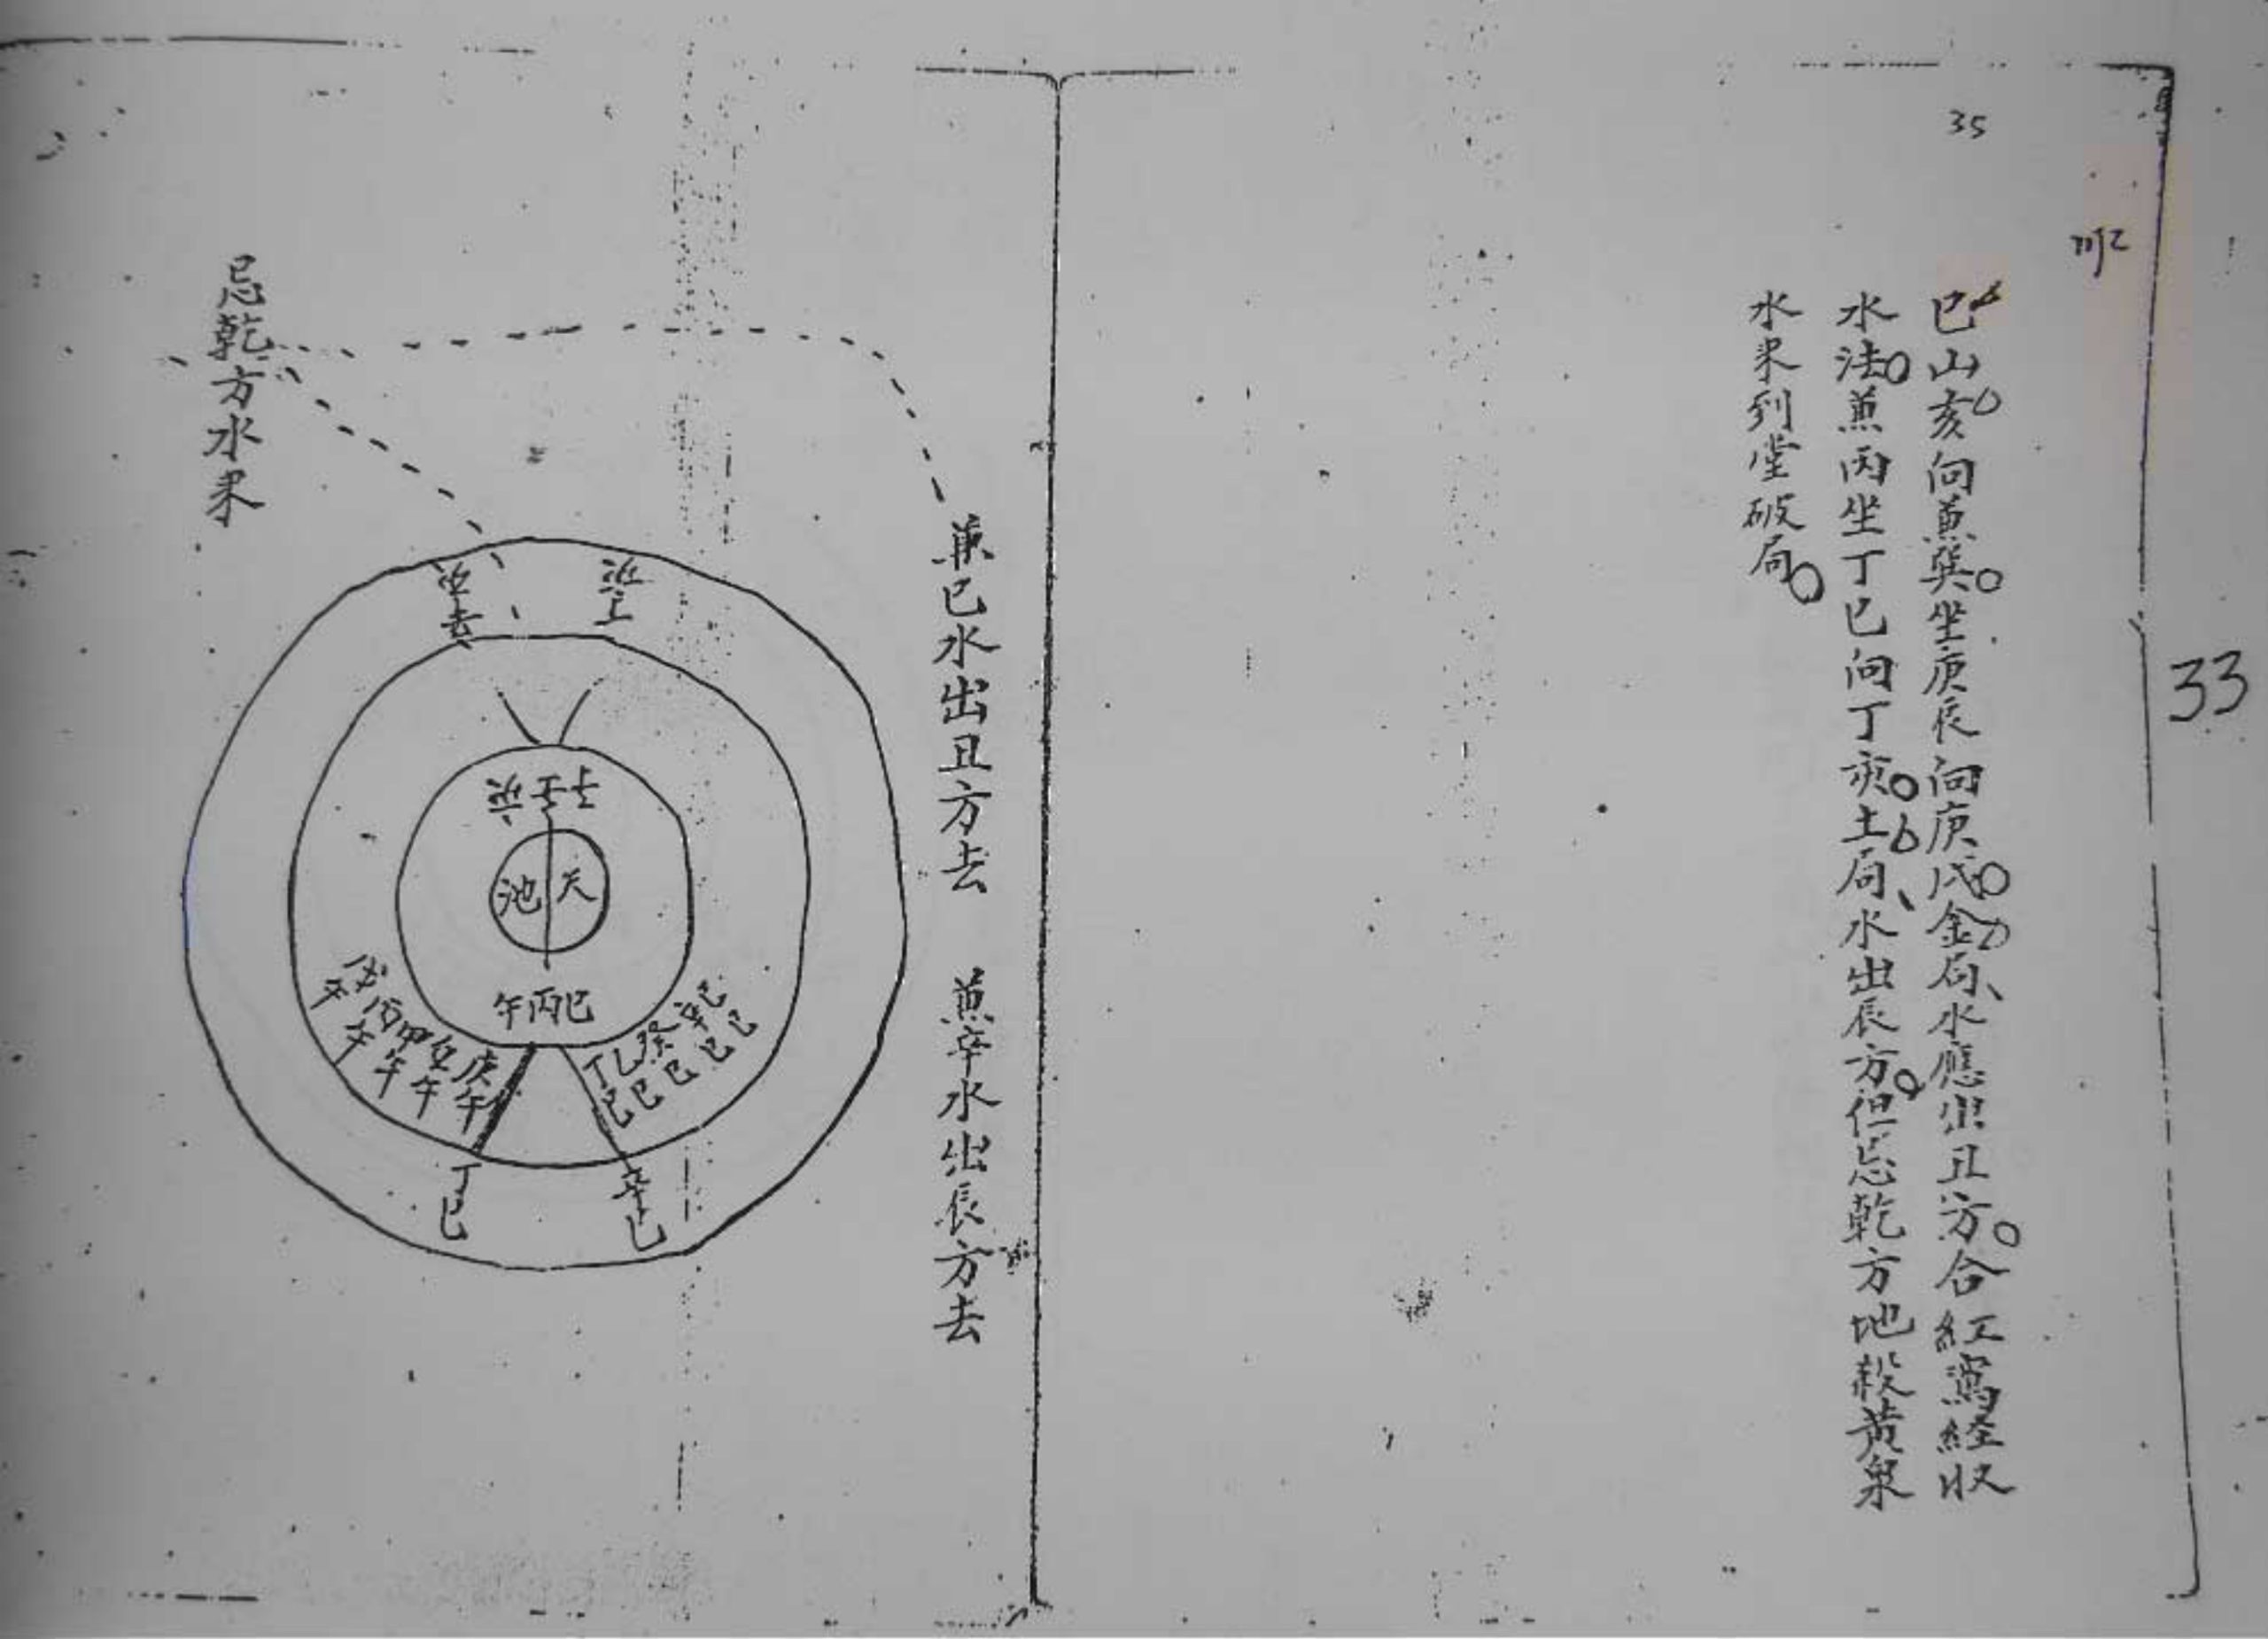 35
33
巳山亥向兼巽坐庚辰向庚戌金局水應出丑方合紅鸞経収
水法兼丙坐丁巳向丁亥土局水出辰方但忌乾方地殺黄泉
水來到堂破局
兼巳水出丑方去　兼辛水出辰方去
忌乾方水來
天池
巳丙午
丁巳 乙巳 癸巳 辛巳 己巳
庚午 午 甲午 丙午 戊午
辛巳
丁巳